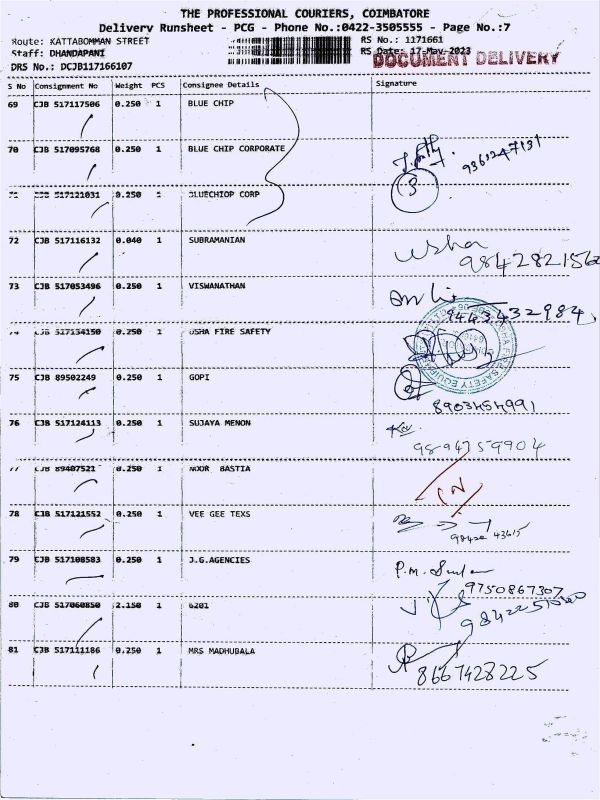 THE PROFESSIONAL COURIERS, COIMBATORE
Delivery Runsheet - PCG - Phone No.:0422-3505555 - Page No.:7
Route: KATTABOMMAN STREET RS No.: 1171661
Staff: DHANDAPANI RS Date: 17-May-2023
DOCUMENT DELIVERY
DRS No.: DCJB117166107
S No Consignment No Weight PCS Consignee Details Signature
69 CJB 517117506 0.250 1 BLUE CHIP
70 CJB 517095768 0.250 1 BLUE CHIP CORPORATE
9361247131
3
CJB 517121031 0.250 1 BLUECHIOP CORP
72 CJB 517116132 0.040 1 SUBRAMANIAN
usha
9842821560
73 CJB 517053496 0.250 1 VISWANATHAN
9443432984
74 CJB 517134150 0.250 1 USHA FIRE SAFETY
75 CJB 89502249 0.250 1 GOPI
8903454991
76 CJB 517124113 0.250 1 SUJAYA MENON
9894759904
77 CJB 89407521 0.250 1 NOOR BASTIA
78 CJB 517121552 0.250 1 VEE GEE TEXS
79 CJB 517108583 0.250 1 J.G.AGENCIES
P.M.
9750867307
80 CJB 517060850 2.150 1 6201
81 CJB 517111186 0.250 1 MRS MADHUBALA
8667428225